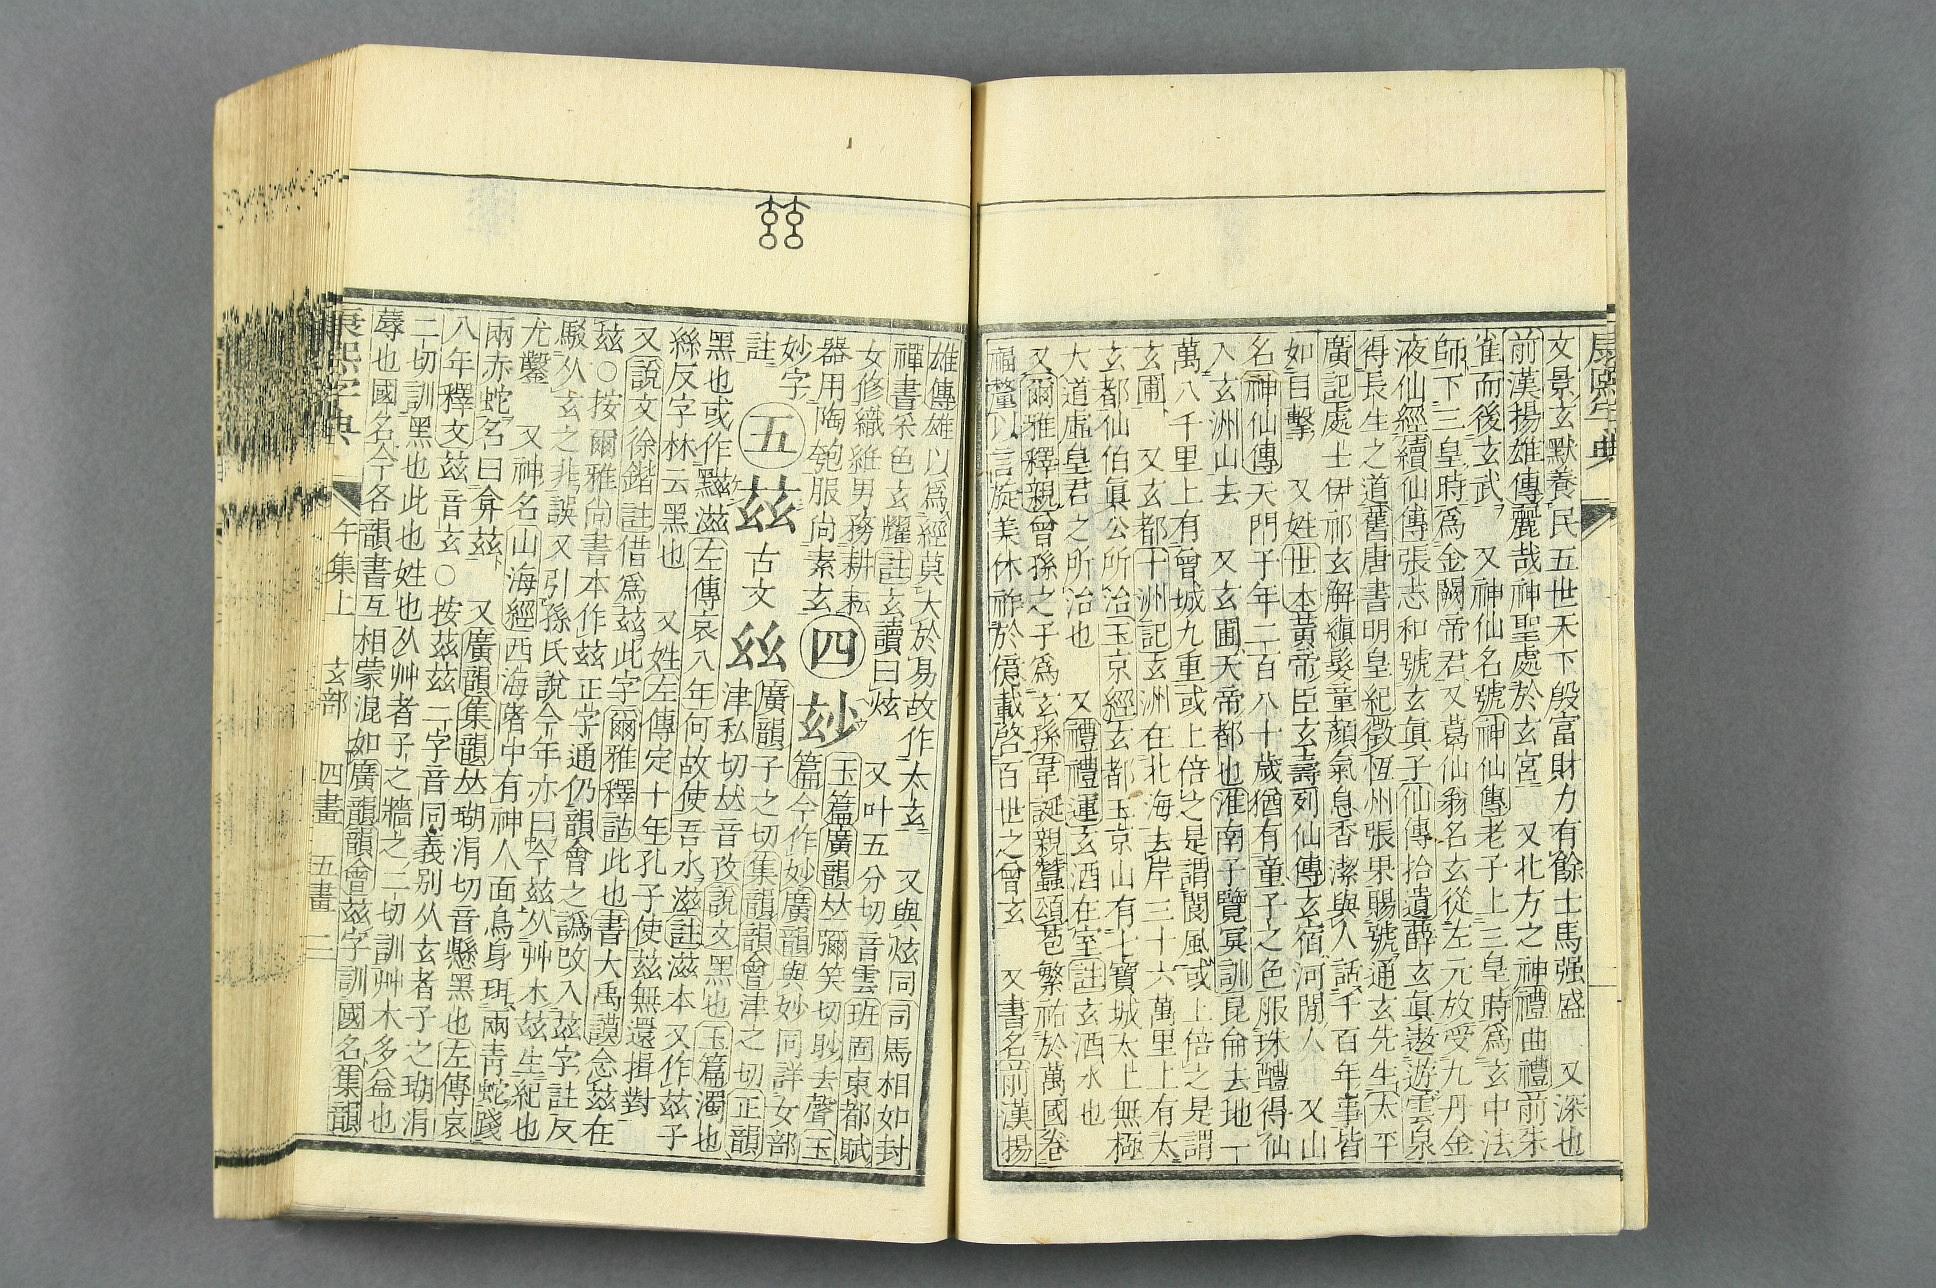 康熙字典
文景玄默養民五世天下殷富財力有餘士馬强盛 又深也
前漢揚雄傳麗哉神聖處於玄宮 又北方之神禮曲禮前朱
雀而後玄武 又神仙名號神仙傳老子上三皇時爲玄中法
師下三皇時爲金闕帝君又葛仙翁名玄從左元放受九丹金
液仙經續仙傳張志和號玄眞子仙傳拾遺薛玄眞遨遊雲泉
得長生之道舊唐書明皇紀徵恆州張果賜號通玄先生太平
廣記處士伊祁玄解縝髮童顏氣息香潔與人話千百年事皆
如目擊 又姓世本黃帝臣玄壽列仙傳玄宿河閒人 又山
名神仙傳天門子年二百八十歲猶有童子之色服珠醴得仙
入玄洲山去 又玄圃天帝都也淮南子覽冥訓昆侖去地一
萬八千里上有曾城九重或上倍之是謂閬風或上倍之是謂
玄圃 又玄都十洲記玄洲在北海去岸三十六萬里上有太
玄都仙伯眞公所治玉京經玄都玉京山有七寶城太上無極
大道虛皇君之所治也 又禮禮運玄酒在室註玄酒水也
又爾雅釋親曾孫之子爲玄孫韋誕親蠶頌葩繁祐於萬國卷
福釐以言旋美休祚於億載啓百世之曾玄 又書名前漢揚
玆
雄傳雄以爲經莫大於易故作太玄 又與炫同司馬相如封
禪書采色玄耀註玄讀曰炫 又叶五分切音雲班固東都賦
女修織紝男務耕耘
器用陶匏服尚素玄 四 玅 玉篇廣韻𠀤彌笑切眇去聲玉
篇今作妙廣韻與妙同詳女部
妙字
註 五 玆 古文 𢆶 廣韻子之切集韻韻會津之切正韻
津私切𠀤音孜說文黑也玉篇濁也
黑也或作黰滋左傳哀八年何故使吾水滋註滋本又作玆子
絲反字林云黑也 又姓左傳定十年孔子使茲無還揖對
又說文徐鍇註借爲茲此字爾雅釋詁此也書大禹謨念茲在
茲○按爾雅尚書本作玆正字通仍韻會之譌改入茲字註反
駁从玄之非誤又引孫氏說今年亦曰今茲从艸木茲生紀也
尤鑿 又神名山海經西海陼中有神人面鳥身珥兩靑蛇踐
兩赤蛇名曰弇茲 又廣韻集韻𠀤瑚涓切音懸黑也左傳哀
八年釋文茲音玄○按茲玆二字音同義別从玄者子之瑚涓
二切訓黑也此也姓也从艸者子之牆之二切訓艸木多益也
蓐也國名今各韻書互相蒙混如廣韻韻會茲字訓國名集韻
康熙字典 午集上 玄部 四畫 五畫 二